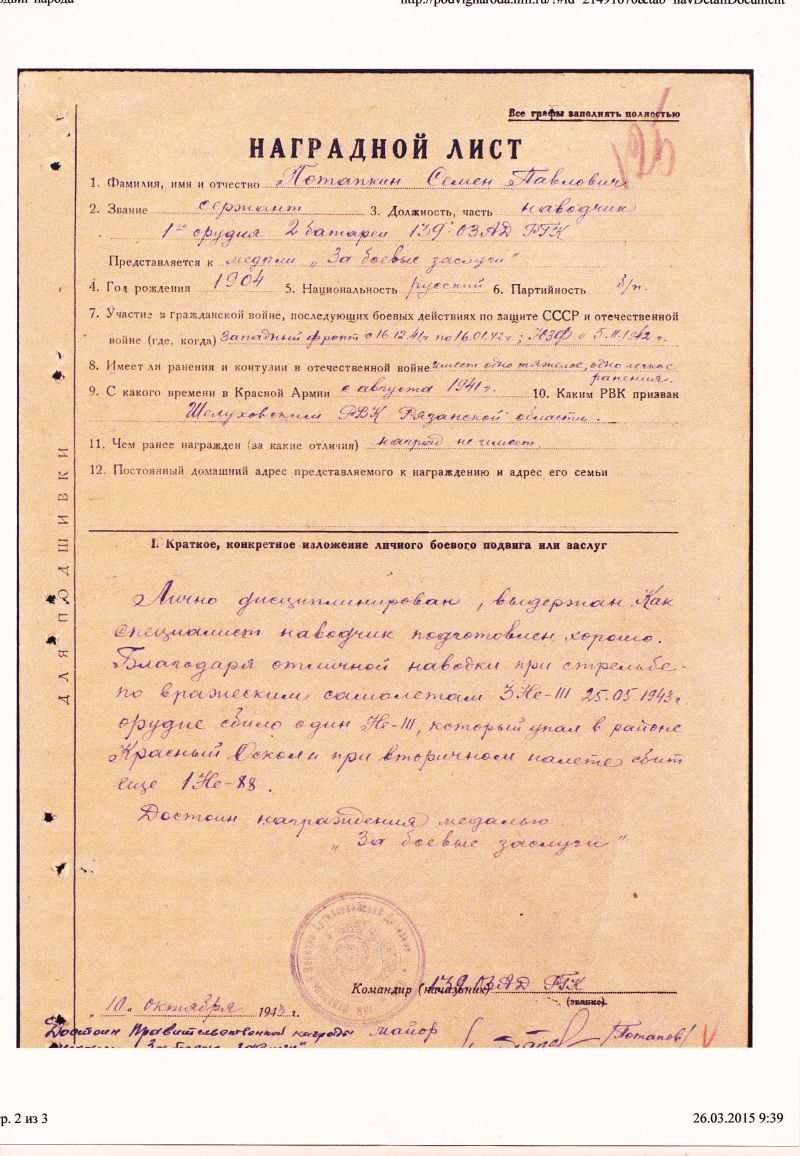 двиг народа http://podvignaroda.mil.ru/?#id=21491070&tab=navDetailDocument
Все графы заполнять полностью
126
НАГРАДНОЙ ЛИСТ
1. Фамилия, имя и отчество Потапкин Семен Павлович
2. Звание сержант 3. Должность, часть наводчик
1го орудия 2 батареи 139 ОЗАД РГК
Представляется к медали „За боевые заслуги"
4. Год рождения 1904 5. Национальность русский 6. Партийность б/п.
7. Участие в гражданской войне, последующих боевых действиях по защите СССР и отечественной
войне (где, когда) Западный фронт с 16.12.41г по 16.01.42г.; ЮЗФ с 5.II.1942г.
8. Имеет ли ранения и контузии в отечественной войне имеет одно тяжелое, одно легкое
ранения.
9. С какого времени в Красной Армии с августа 1941г. 10. Каким РВК призван
Шелуховским РВК Рязанской области.
11. Чем ранее награжден (за какие отличия) наград не имеет
12. Постоянный домашний адрес представляемого к награждению и адрес его семьи
ДЛЯ ПОДШИВКИ
I. Краткое, конкретное изложение личного боевого подвига или заслуг
Лично дисциплинирован, выдержан. Как
специалист наводчик подготовлен хорошо.
Благодаря отличной наводки при стрельбе
по вражеским самолетам 3 Не-III 25.05.1943г.
орудие сбило один Не-III, который упал в районе
Красный Оскол и при вторичном налете сбит
еще 1 Не-88.
Достоин награждения медалью
„За боевые заслуги"
Командир (начальник) 139 ОЗАД РГК
(звание)
„10" октября 1943 г.
Достоин Правительственной награды майор /Потапов/
р. 2 из 3 26.03.2015 9:39